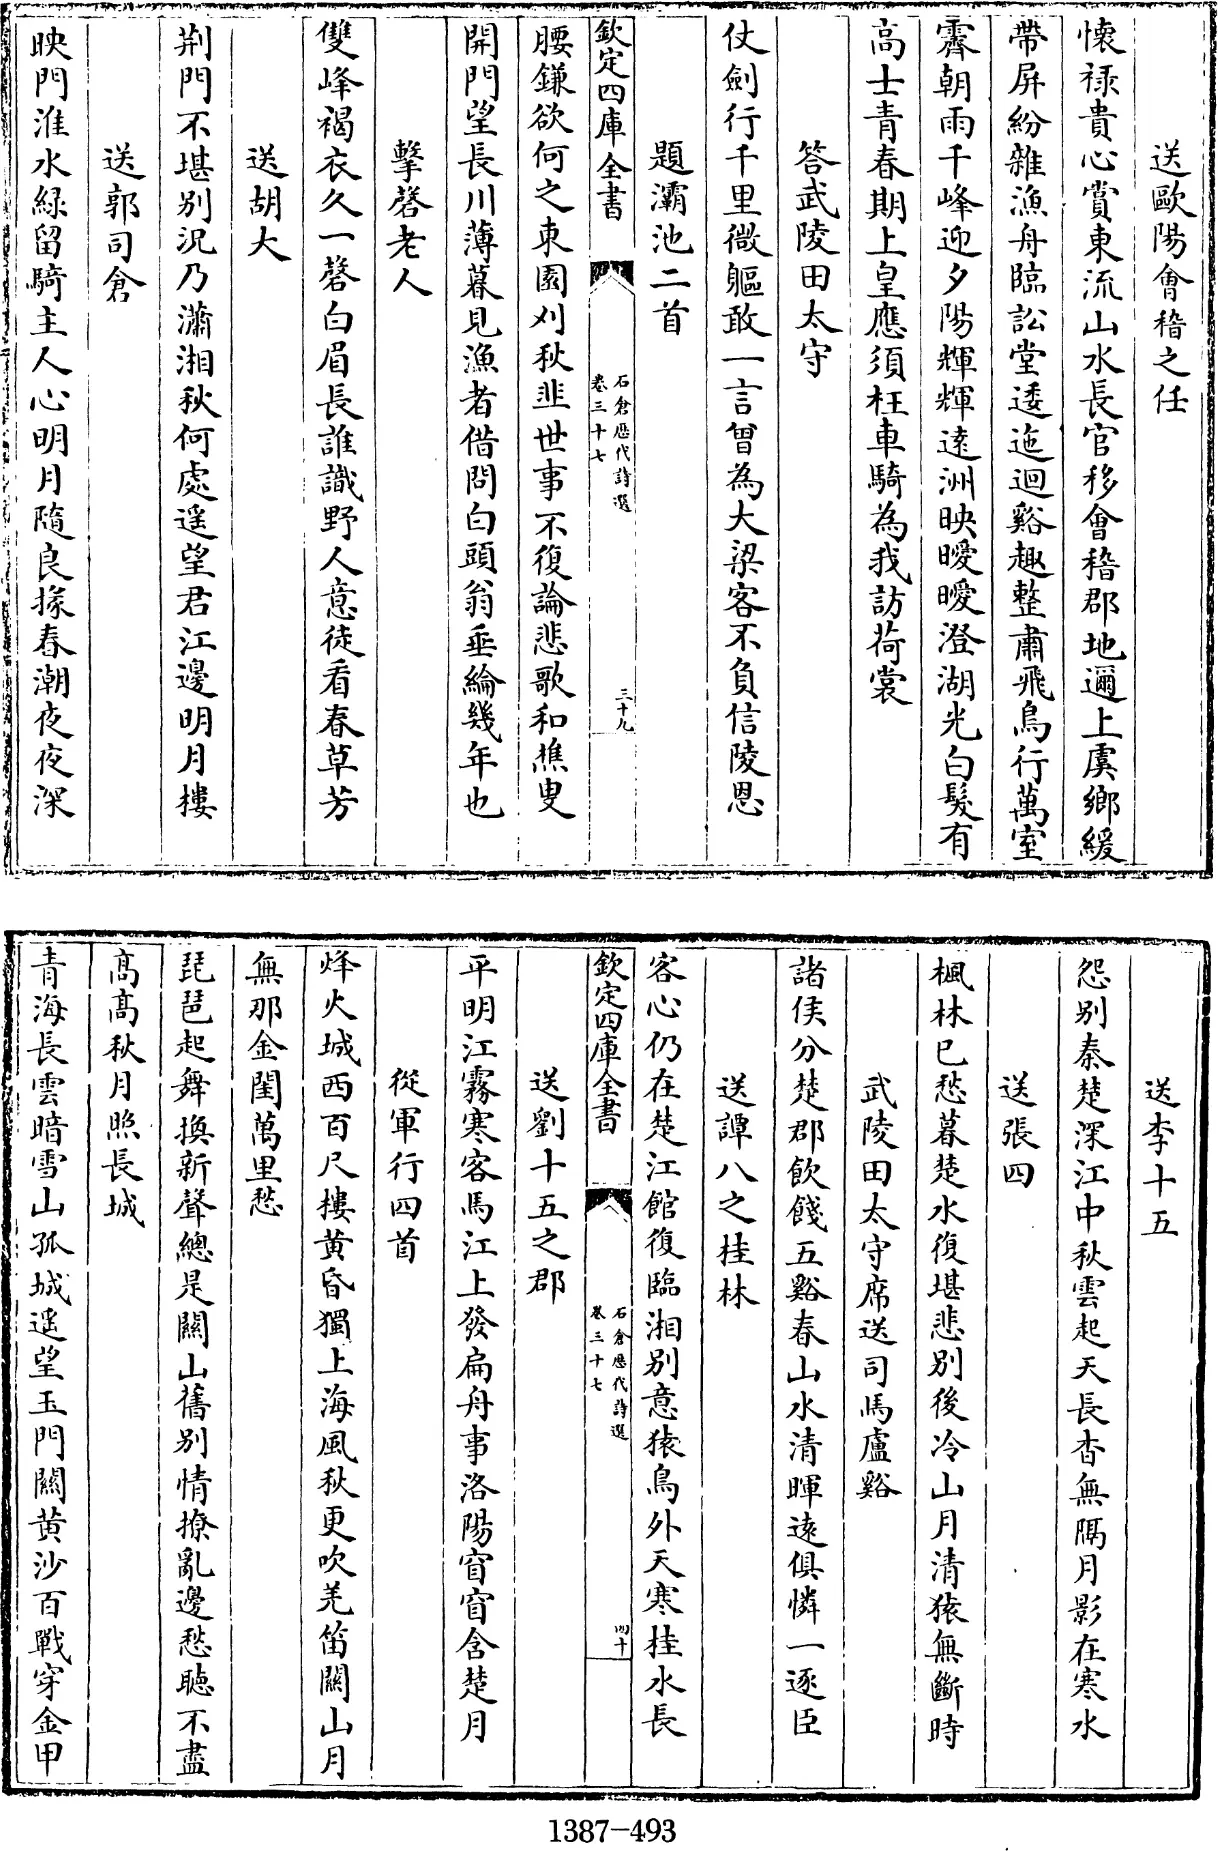 送歐陽會稽之任
懷祿貴心賞東流山水長官移會稽郡地邇上虞鄉緩
帶屏紛雜漁舟臨訟堂逶迤迴谿趣整肅飛鳥行萬室
霽朝雨千峰迎夕陽輝輝遠洲映曖曖澄湖光白髮有
高士青春期上皇應須枉車騎為我訪荷裳
答武陵田太守
仗劍行千里微軀敢一言曾為大梁客不負信陵恩
題灞池二首
欽定四庫全書
石倉歷代詩選
卷三十七
三十九
腰鎌欲何之東園刈秋韭世事不復論悲歌和樵叟
開門望長川薄暮見漁者借問白頭翁垂綸幾年也
擊磬老人
雙峰褐衣久一磬白眉長誰識野人意徒看春草芳
送胡大
荆門不堪別況乃瀟湘秋何處遙望君江邊明月樓
送郭司倉
映門淮水綠留騎主人心明月隨良掾春潮夜夜深
送李十五
怨別秦楚深江中秋雲起天長杳無隅月影在寒水
送張四
楓林已愁暮楚水復堪悲別後冷山月清猿無斷時
武陵田太守席送司馬盧谿
諸侯分楚郡飲餞五谿春山水清暉遠俱憐一逐臣
送譚八之桂林
客心仍在楚江館復臨湘別意猿鳥外天寒桂水長
欽定四庫全書
石倉歷代詩選
卷三十七
四十
送劉十五之郡
平明江霧寒客馬江上發扁舟事洛陽窅窅含楚月
從軍行四首
烽火城西百尺樓黃昏獨上海風秋更吹羌笛關山月
無那金閨萬里愁
琵琶起舞換新聲總是關山舊別情撩亂邊愁聽不盡
高高秋月照長城
青海長雲暗雪山孤城遙望玉門關黃沙百戰穿金甲
1387-493